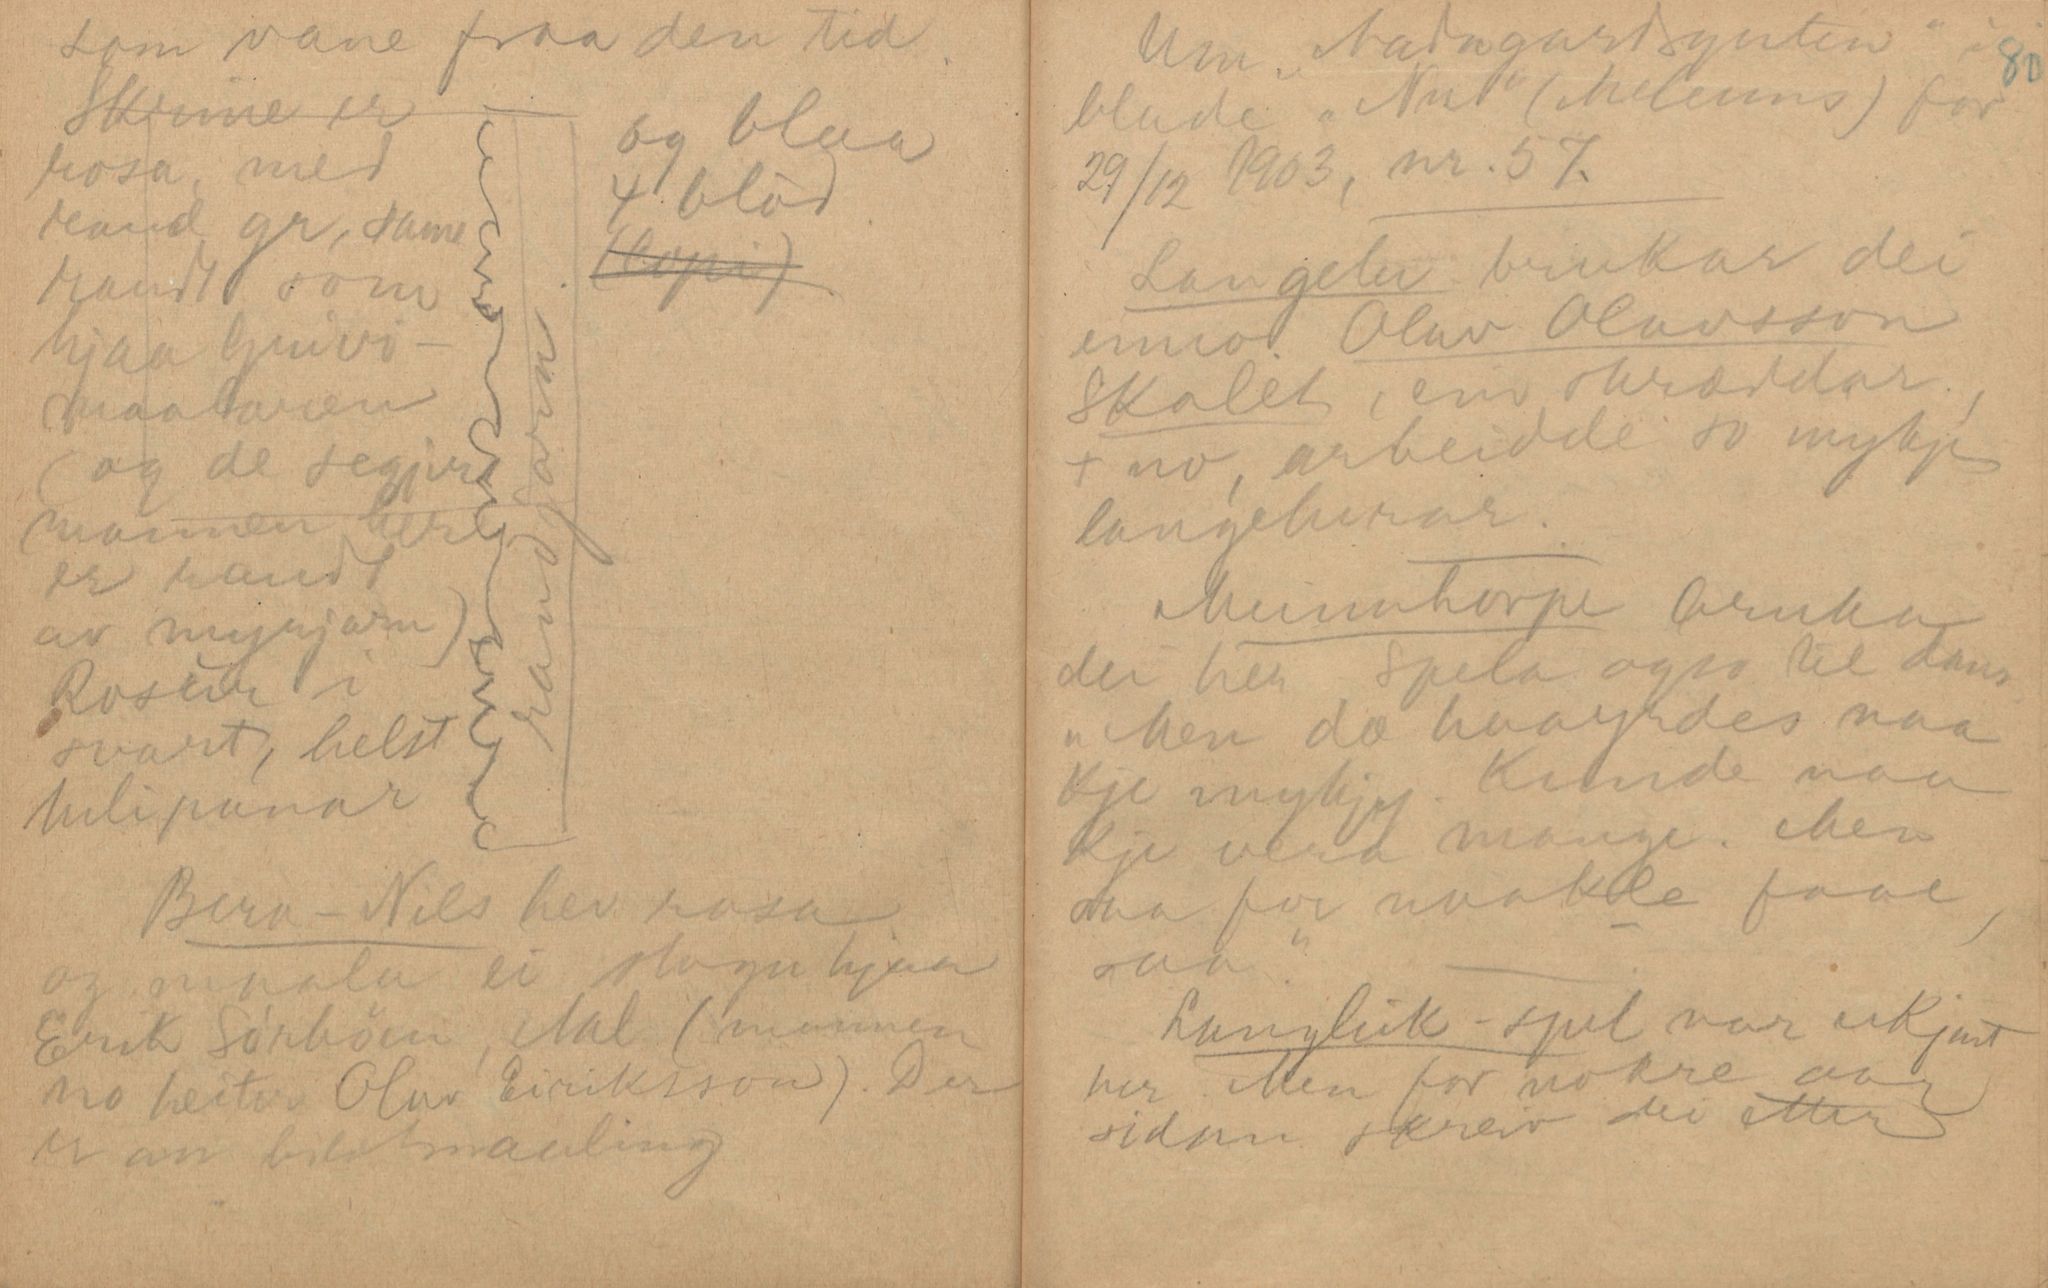 som vane fraa den tid.
Skrine er
rosa, med
rand gr, same
randt som
hjaa
maalaren
(og de segjer
mannen her
er randt
av myrjarn)
Rosur i
svart, helst
tulipanar
randjarn
og blaa
4 blöd
(kopi)
Bera-Nils hev rosa
og maala ei stogu hjaa
Erik Sörböen, Aal (mannen
no heiter Olav Eiriksson). Der
er an
80
Um „Aadngardsguten" i
blade „Nut" (Meleims) for
29/12 1903, nr. 57.
Langelu brukar dei
enno. Olav Olavsson
Skalet, ein skræddar,
+ no, arbeidde so mykje
langelurar.
Munnhorpe bruka
dei her. Spela ogso til dans.
„Men dæ haayrdes naa
kje mykjy. Kunde naa
kje vera mange. Men
saa for naakle faae,
saa"
Langleik-spel var ukjent
her. Men for nokre aar
sidan skreiv dei etter